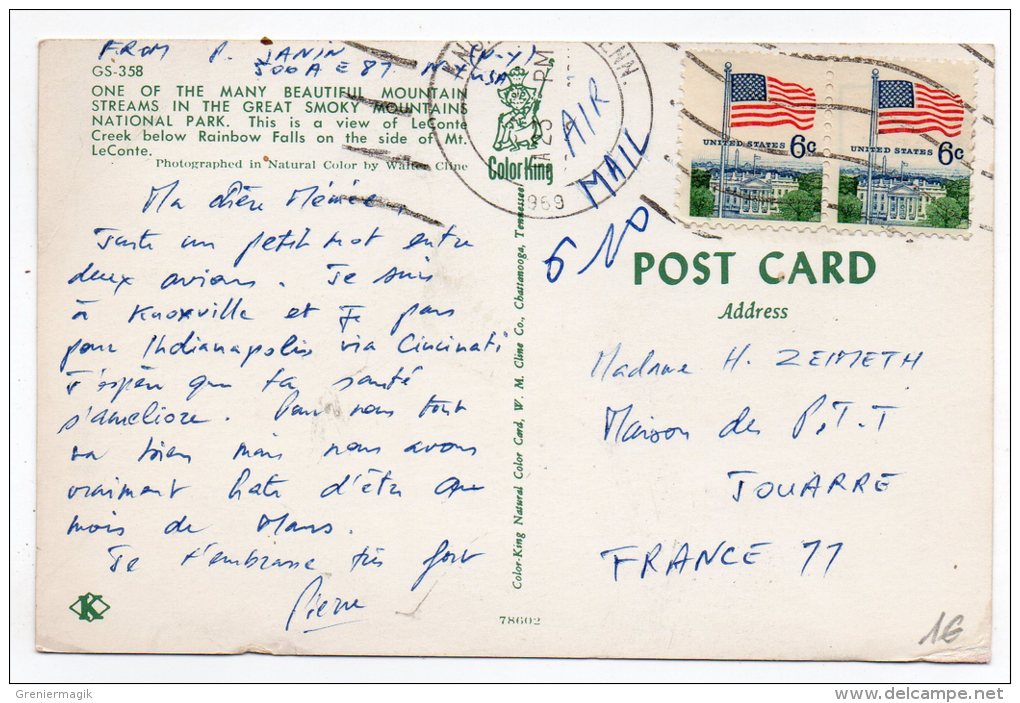 FROM P. JANIN (N-Y)
500A E 87 NY USA
GS-358
ONE OF THE MANY BEAUTIFUL MOUNTAIN
STREAMS IN THE GREAT SMOKY MOUNTAINS
NATIONAL PARK. This is a view of LeConte
Creek below Rainbow Falls on the side of Mt.
LeConte.
Photographed in Natural Color by Walter Cline
Ma chère Mémée,
Juste un petit mot entre
deux avions. Je suis
à Knoxville et je pars
pour Indianapolis via Cincinati
J'espère que ta santé
s'améliore. Pour nous tout
va bien mais nous avons
vraiment hate d'être au
mois de Mars.
Je t'embrasse très fort
Pierre
K
Color King
Color-King Natural Color Card, W. M. Cline Co., Chattanooga, Tennessee
78602
TENN.
PM
1969
AIR
MAIL
UNITED STATES 6c
UNITED STATES 6c
POST CARD
Address
Madame H. ZEIMETH
Maison des P.T.T
JOUARRE
FRANCE 77
1€
Greniermagik
www.delcampe.net